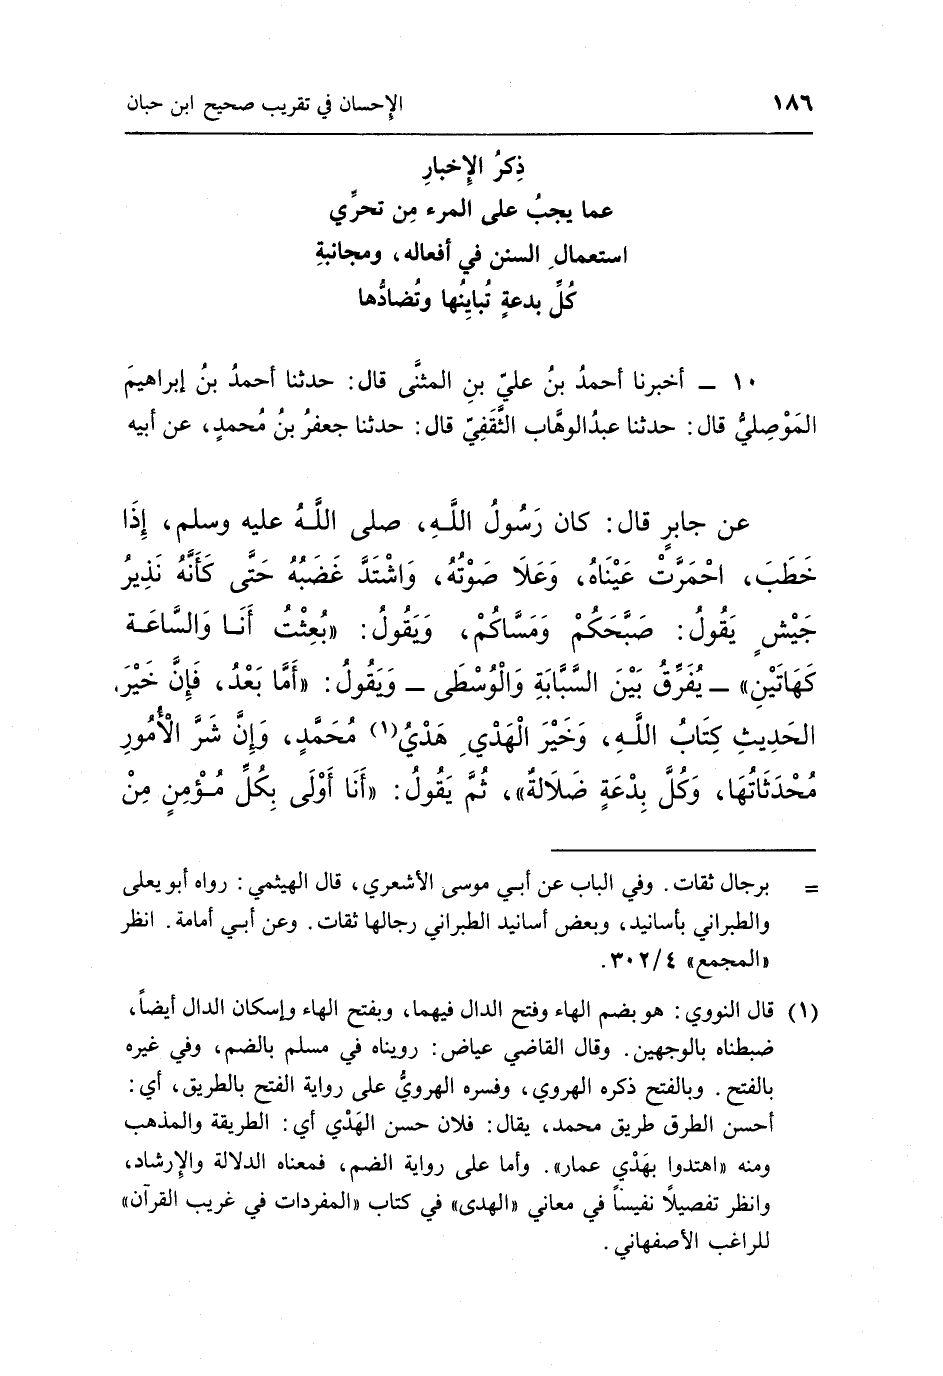 ١٨٦ الإحسان في تقريب صحيح ابن حبان
ذِكرُ الإِخبارِ
عما يجبُ على المرء مِن تحرِّي
استعمالِ السنن في أفعاله، ومجانبةِ
كُلِّ بدعةٍ تُبايِنُها وتُضادُّها
١٠ ــ أخبرنا أحمدُ بنُ عليّ بنِ المثنَّى قال: حدثنا أحمدُ بنُ إبراهيمَ
المَوْصِليُّ قال: حدثنا عبدُالوهَّاب الثَّقَفِيّ قال: حدثنا جعفرُ بنُ مُحمدٍ، عن أبيه
عن جابرٍ قال: كان رَسُولُ اللَّهِ، صلى اللَّهُ عليه وسلم، إِذَا
خَطَبَ، احْمَرَّتْ عَيْنَاهُ، وَعَلَا صَوْتُهُ، وَاشْتَدَّ غَضَبُهُ حَتَّى كَأَنَّهُ نَذِيرُ
جَيْشٍ يَقُولُ: صَبَّحَكُمْ وَمَسَّاكُمْ، وَيَقُولُ: «بُعِثْتُ أَنَا وَالسَّاعَةَ
كَهَاتَيْنِ» ــ يُفَرِّقُ بَيْنَ السَّبَّابَةِ وَالْوُسْطَى ــ وَيَقُولُ: «أَمَّا بَعْدُ، فَإِنَّ خَيْرَ
الحَدِيثِ كِتَابُ اللَّهِ، وَخَيْرَ الْهَدْيِ هَدْيُ(١) مُحَمَّدٍ، وَإِنَّ شَرَّ الْأُمُورِ
مُحْدَثَاتُهَا، وَكُلَّ بِدْعَةٍ ضَلَالةٌ»، ثُمَّ يَقُولُ: «أَنَا أَوْلَى بِكُلِّ مُؤْمِنٍ مِنْ
= برجال ثقات. وفي الباب عن أبي موسى الأشعري، قال الهيثمي: رواه أبو يعلى
والطبراني بأسانيد، وبعض أسانيد الطبراني رجالها ثقات. وعن أبي أمامة. انظر
«المجمع» ٣٠٢/٤.
(١) قال النووي: هو بضم الهاء وفتح الدال فيهما، وبفتح الهاء وإسكان الدال أيضاً،
ضبطناه بالوجهين. وقال القاضي عياض: رويناه في مسلم بالضم، وفي غيره
بالفتح. وبالفتح ذكره الهروي، وفسره الهرويُّ على رواية الفتح بالطريق، أي:
أحسن الطرق طريق محمد، يقال: فلان حسن الهَدْي أي: الطريقة والمذهب
ومنه «اهتدوا بهَدْي عمار». وأما على رواية الضم، فمعناه الدلالة والإرشاد،
وانظر تفصيلاً نفيساً في معاني «الهدى» في كتاب «المفردات في غريب القرآن»
للراغب الأصفهاني.